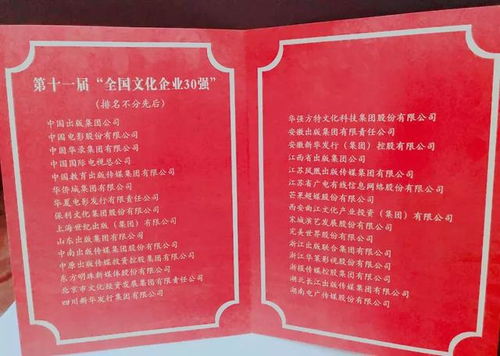 第十一届“全国文化企业30强”
（排名不分先后）
中国出版集团公司
中国电影股份有限公司
中国华录集团有限公司
中国国际电视总公司
中国教育出版传媒集团有限公司
华侨城集团有限公司
华夏电影发行有限责任公司
保利文化集团股份有限公司
上海世纪出版（集团）有限公司
山东出版集团有限公司
中南出版传媒集团股份有限公司
中原出版传媒投资控股集团有限公司
东方明珠新媒体股份有限公司
北京市文化投资发展集团有限责任公司
四川新华发行集团有限公司
华强方特文化科技集团股份有限公司
安徽出版集团有限责任公司
安徽新华发行（集团）控股有限公司
江西省出版集团公司
江苏凤凰出版传媒集团有限公司
江苏省广电有线信息网络股份有限公司
芒果超媒股份有限公司
西安曲江文化产业投资（集团）有限公司
宋城演艺发展股份有限公司
完美世界股份有限公司
浙江出版联合集团有限公司
浙江华策影视股份有限公司
浙报传媒控股集团有限公司
湖北长江出版传媒集团有限公司
湖南电广传媒股份有限公司